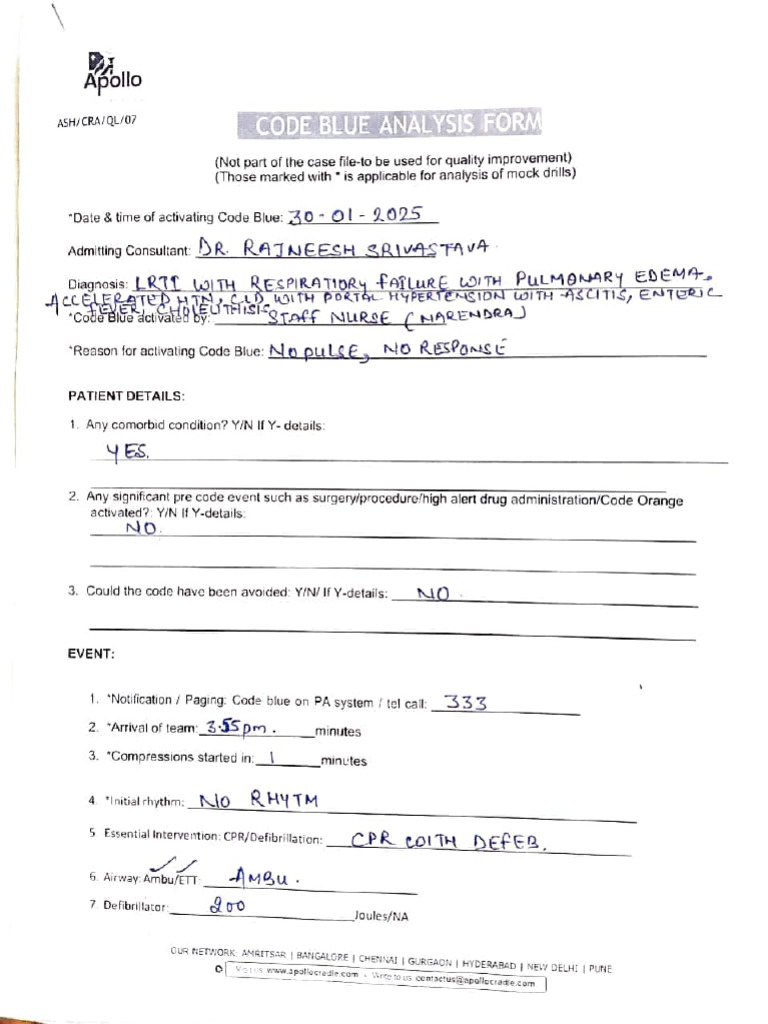 Apollo
ASH/CRA/QL/07
CODE BLUE ANALYSIS FORM
(Not part of the case file-to be used for quality improvement)
(Those marked with * is applicable for analysis of mock drills)
*Date & time of activating Code Blue: 30-01-2025
Admitting Consultant: DR. RAJNEESH SRIVASTAVA.
Diagnosis: LRTI WITH RESPIRATIORY FAILURE WITH PULMONARY EDEMA.
ACCELERATED HTN, CLD WITH PORTAL HYPERTENSION WITH ASCITIS, ENTERIC
FEVER, CHOLELITHISIS
*Code Blue activated by: STAFF NURSE (NARENDRA)
*Reason for activating Code Blue: NO PULSE, NO RESPONSE
PATIENT DETAILS:
1. Any comorbid condition? Y/N If Y- details:
YES.
2. Any significant pre code event such as surgery/procedure/high alert drug administration/Code Orange
activated?: Y/N If Y-details:
NO.
3. Could the code have been avoided: Y/N/ If Y-details: NO.
EVENT:
1. *Notification / Paging: Code blue on PA system / tel call: 333
2. *Arrival of team: 3.55pm. minutes
3. *Compressions started in: 1 minutes
4. *Initial rhythm: NO RHYTM
5 Essential Intervention: CPR/Defibrillation: CPR WITH DEFEB.
6. Airway: Ambu/ETT: AMBU.
7 Defibrillator: 200 Joules/NA
OUR NETWORK: AMRITSAR | BANGALORE | CHENNAI | GURGAON | HYDERABAD | NEW DELHI | PUNE
Visit us www.apollocradle.com - Write to us contactus@apollocradle.com